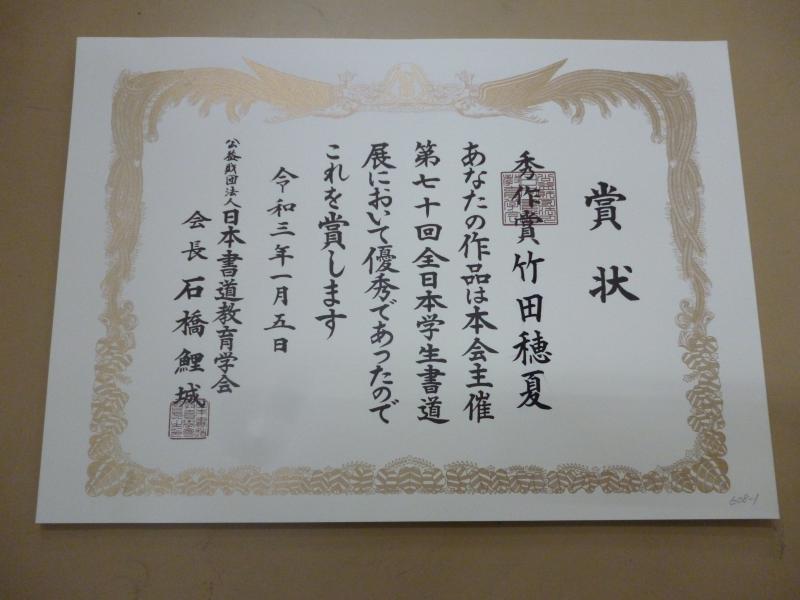 賞状
秀作賞 竹田穂夏
あなたの作品は本会主催
第七十回全日本学生書道
展において優秀であったので
これを賞します
令和三年一月五日
公益財団法人日本書道教育学会
会長 石橋鯉城
608-1